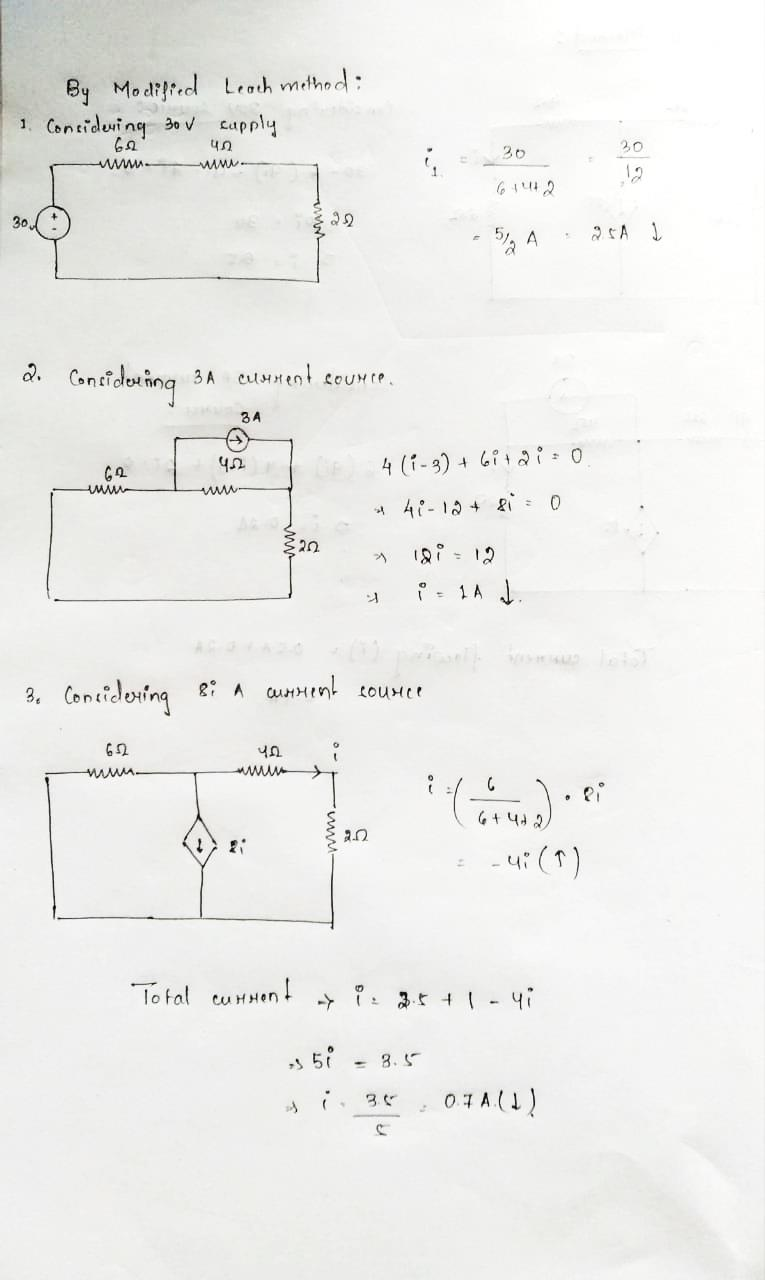 By Modified Leach method:
1. Considering 30 V supply
6Ω 4Ω
30v + - 2Ω
i₁ = 30 / 6+4+2 = 30 / 12
= 5/2 A = 2.5A ↓
2. Considering 3A current source.
3A
6Ω 4Ω
2Ω
4(i-3) + 6i + 2i = 0
⇒ 4i - 12 + 8i = 0
⇒ 12i = 12
⇒ i = 1A ↓.
3. Considering 8i A current source
6Ω 4Ω i
8i 2Ω
i = (6 / 6+4+2) . 8i
= -4i (↑)
Total current → i = 2.5 + 1 - 4i
⇒ 5i = 3.5
⇒ i = 3.5 / 5 = 0.7 A.(↓)